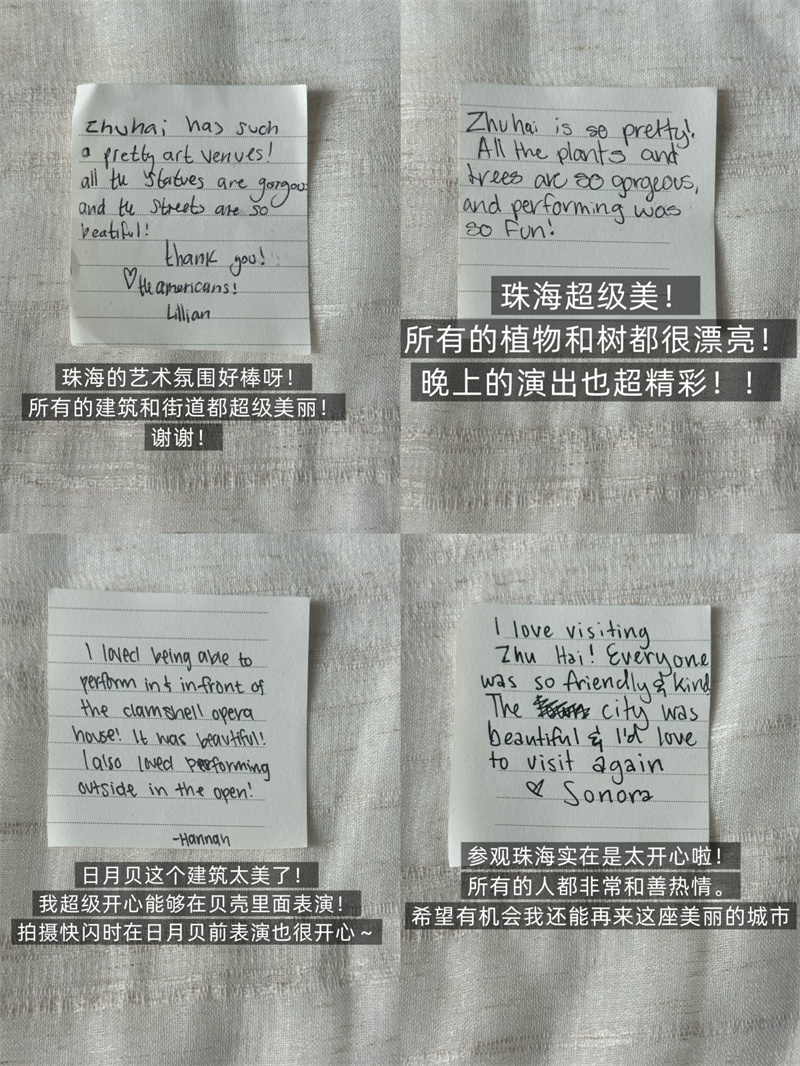 Zhuhai has such
a pretty art venues!
all the statues are gorgous
and the streets are so
beatiful!
thank you!
♡the americans!
Lillian
珠海的艺术氛围好棒呀！
所有的建筑和街道都超级美丽！
谢谢！
Zhuhai is so pretty!
All the plants and
trees are so gorgeous,
and performing was
so fun!
珠海超级美！
所有的植物和树都很漂亮！
晚上的演出也超精彩！！
I loved being able to
perform in & infront of
the clamshell opera
house! It was beautiful!
I also loved performing
outside in the open!
-Hannah
日月贝这个建筑太美了！
我超级开心能够在贝壳里面表演！
拍摄快闪时在日月贝前表演也很开心～
I love visiting
Zhu Hai! Everyone
was so friendly & kind
The city was
beautiful & I'd love
to visit again
♡ Sonora
参观珠海实在是太开心啦！
所有的人都非常和善热情。
希望有机会我还能再来这座美丽的城市